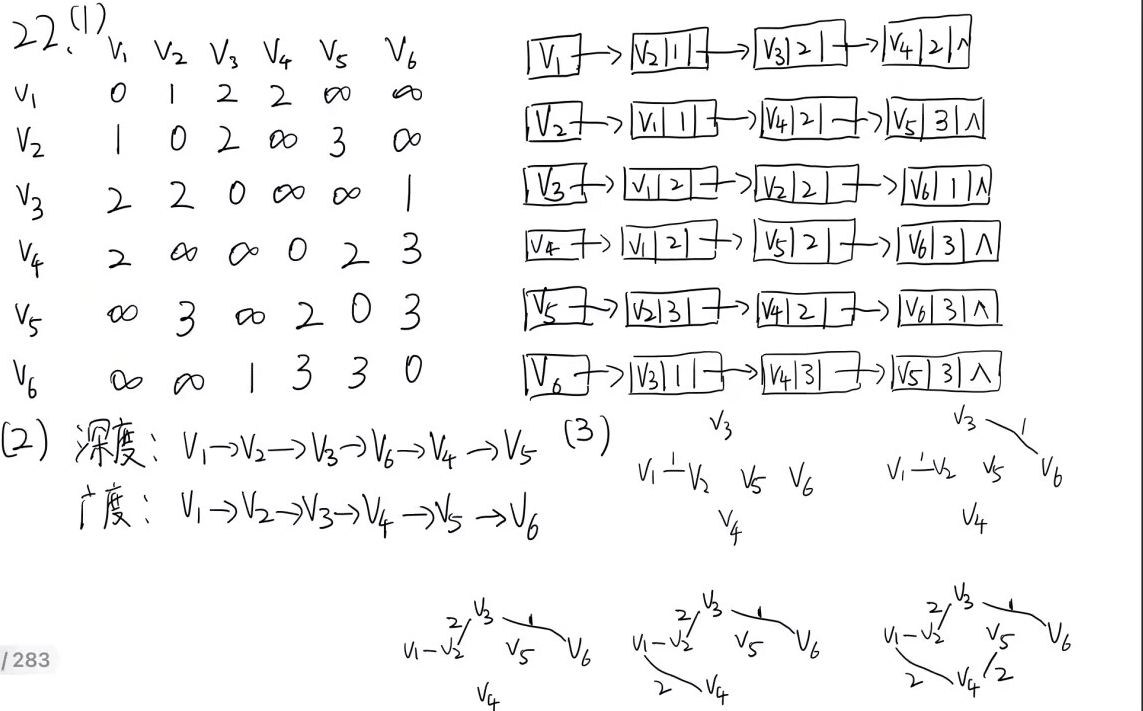 22.(1)
V₁ V₂ V₃ V₄ V₅ V₆
V₁ 0 1 2 2 ∞ ∞
V₂ 1 0 2 ∞ 3 ∞
V₃ 2 2 0 ∞ ∞ 1
V₄ 2 ∞ ∞ 0 2 3
V₅ ∞ 3 ∞ 2 0 3
V₆ ∞ ∞ 1 3 3 0
V₁ → V₂|1| → V₃|2| → V₄|2|∧
V₂ → V₁|1| → V₄|2| → V₅|3|∧
V₃ → V₁|2| → V₂|2| → V₆|1|∧
V₄ → V₁|2| → V₅|2| → V₆|3|∧
V₅ → V₂|3| → V₄|2| → V₆|3|∧
V₆ → V₃|1| → V₄|3| → V₅|3|∧
(2) 深度: V₁→V₂→V₃→V₆→V₄→V₅
广度: V₁→V₂→V₃→V₄→V₅→V₆
(3)
V₃
V₁ 1 V₂ V₅ V₆
V₄
V₃ 1
V₁ 1 V₂ V₅ V₆
V₄
2 V₃ 1
V₁-V₂ V₅ V₆
V₄
2 V₃ 1
V₁-V₂ V₅ V₆
2 V₄
2 V₃ 1
V₁-V₂ V₅ V₆
2 V₄ 2
/ 283